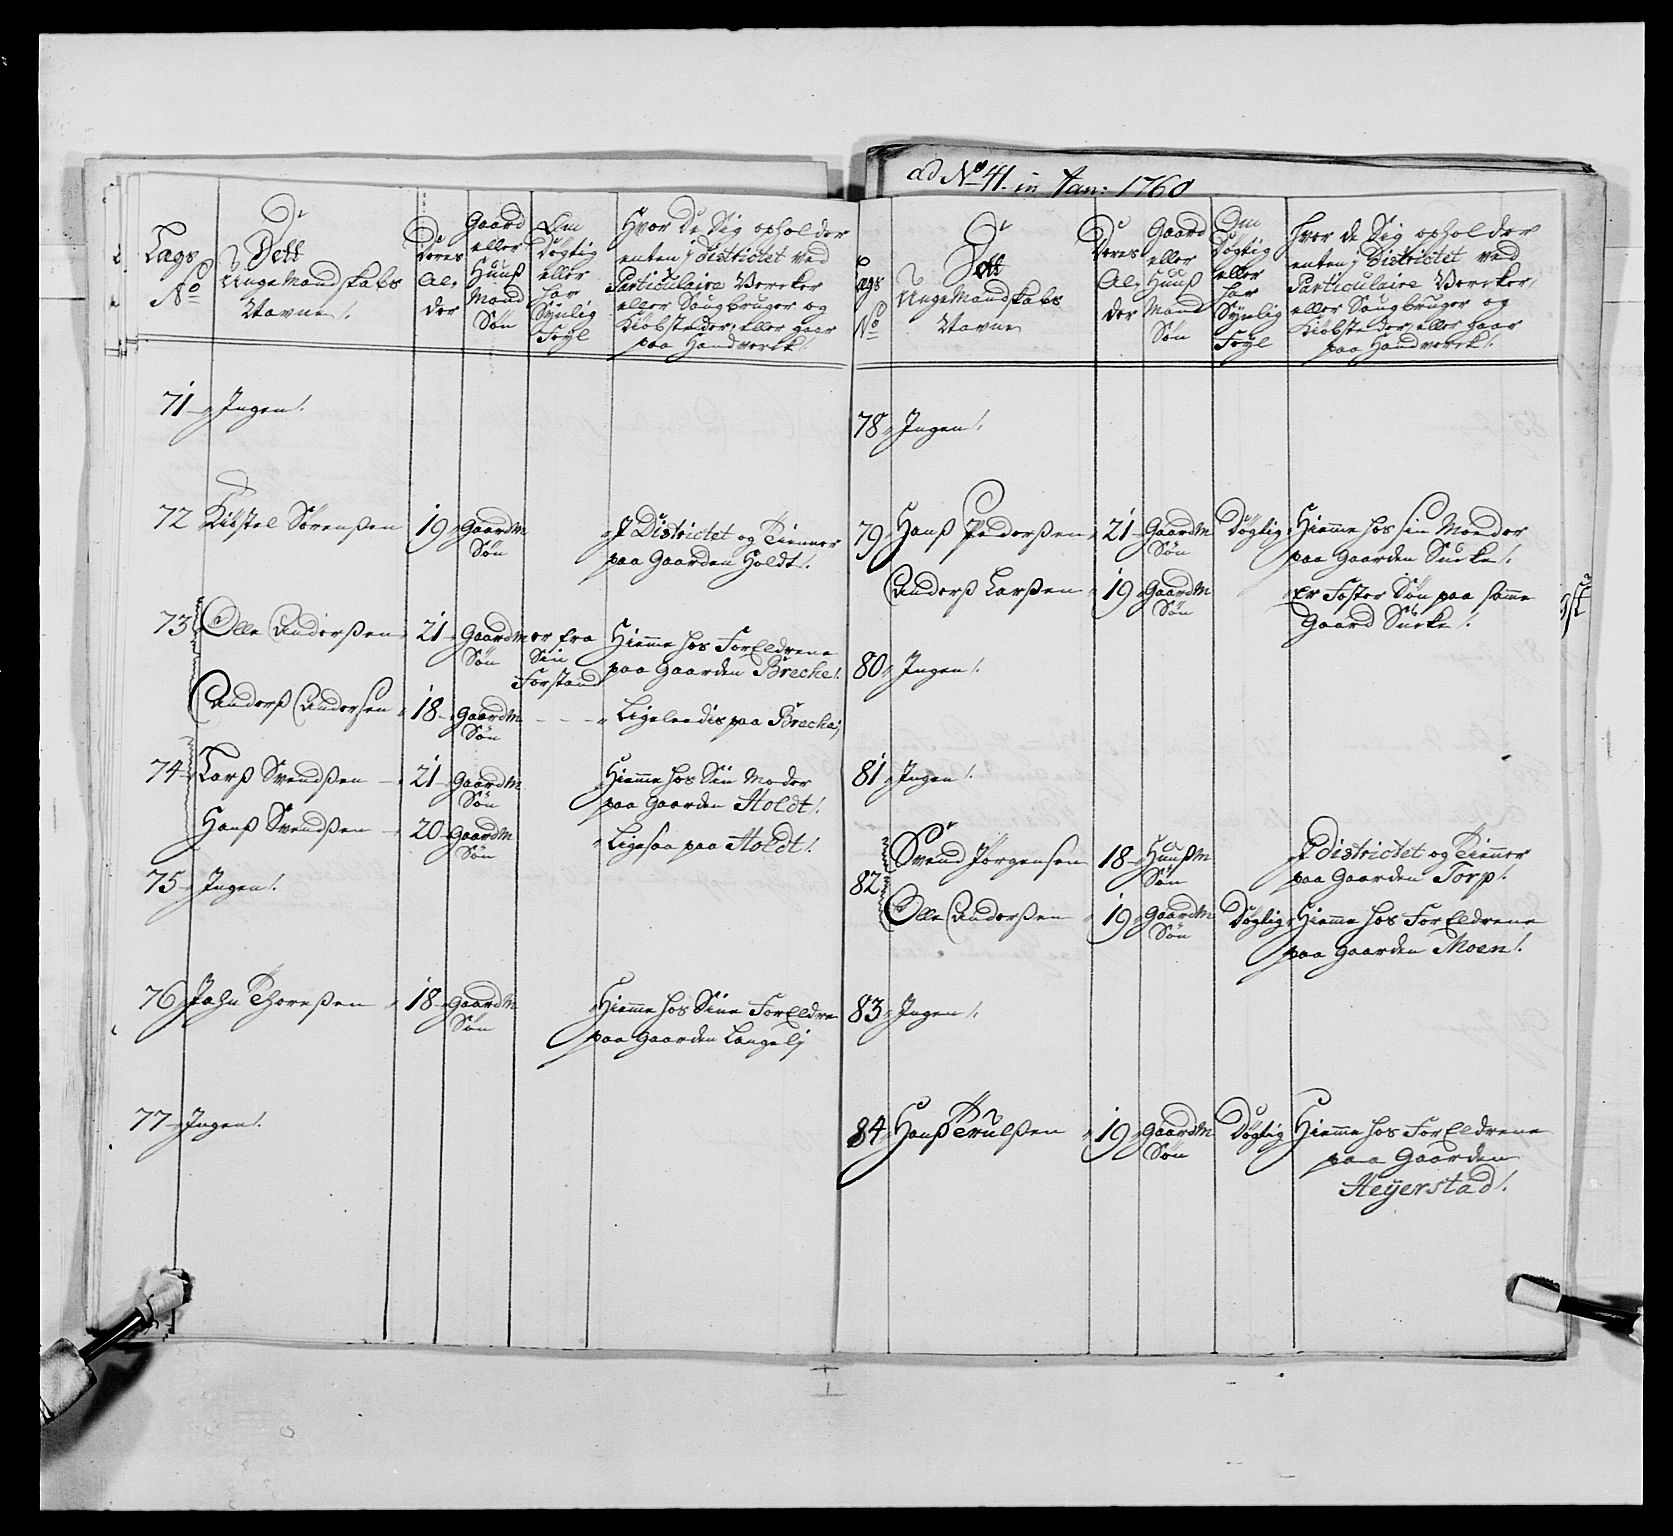 ad No 41. in Jan: 1760
Lags No
Dett Unge Mandskabs Navne/.
Deres Alder
Gaard eller Huuß Mand Søn
Om Døgtig eller har Synlig Feyl
Hvor de Sig opholder
enten i Districtet ved
Particulaire Vercker
eller Saugbruger og
Kiøbsteder, eller gaar
paa Handverck/
71 Ingen/.
72 Kibstel Sørenßen 19 Gaardm Søn I Districtet og Tienner
paa Gaarden Holdt/.
73 Olle Anderßen 21 Gaardm Søn er fra Sin Forstand Hiemme hos ForEldrene
paa Gaarden Brecke/.
Anderß Andersen 18 Gaardm Søn - - - Ligeleedis paa Brecke/
74 Larß Svendßen 21 Gaardm Søn Hiemme hos Sin Moder
paa Gaarden Holdt/.
Hanß Svendßen 20 Gaardm Søn Ligesaa paa Holdt/.
75 Ingen/.
76 John Thoreßen 18 Gaardm Søn Hiemme hos Sine ForEldre
paa Gaarden Langelj
77 Ingen/.
Lags No
Dett Unge Mandskabs Navne
Deres Alder
Gaard eller Huuß Mand Søn
Om Døgtig eller har Synlig Feyl
Hvor de Sig opholder
enten i Districtet ved
Particulaire Vercker,
eller Saugbruger og
Kiøbsteder, eller gaar
paa Handverck/.
78 Ingen/.
79 Hanß Pederßen 21 Gaardm Søn Døgtig Hiemme hos sin Moeder
paa Gaarden Sucke/.
Anderß Larßen 19 Gaardm Søn Er Foster Søn paa samme
Gaard Sucke/.
80 Ingen/.
81 Ingen/.
82 Svend Jørgensen 18 Huußm Søn I districtet og Tienner
paa Gaarden Torp/.
Olle Anderßen 19 Gaardm Søn Døgtig Hiemme hos ForEldrene
paa Gaarden Moen/.
83 Ingen/.
84 Hanß Terulßen 19 Gaardm Søn Døgtig Hiemme hos ForEldrene
paa Gaarden
Heÿerstad/.